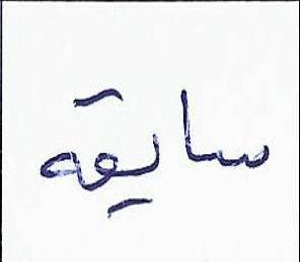 سايقة